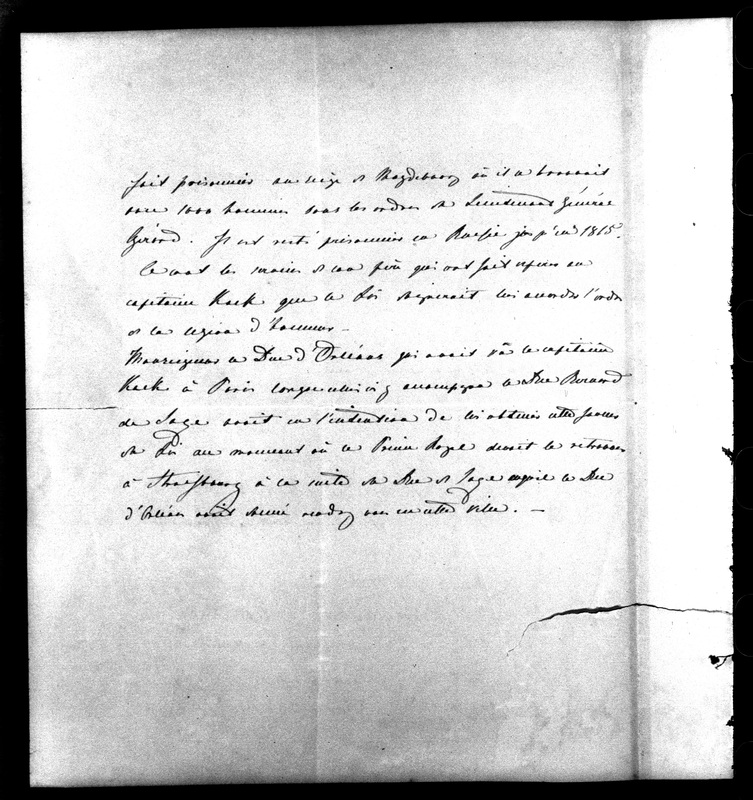 fait prisonnier au siège de Magdebourg où il se trouvait
avec 1000 hommes sous les ordres du Lieutenant Général
Girard. Il est resté prisonnier en Russie jusqu'en 1815.
Ce sont les services de son père qui ont fait espérer au
capitaine Kock que le Roi daignerait lui accorder l'ordre
de la légion d'honneur –
Monseigneur le Duc d'Orléans qui avait vu le capitaine
Kock à Paris lorsque celui-ci y accompagna le Duc Bernard
de Saxe avait eu l'intention de lui obtenir cette faveur
du Roi au moment où le Prince Royal devait le retrouver
à Strasbourg à la suite du Duc de Saxe auquel le Duc
d'Orléans avait donné rendez vous en cette ville. –